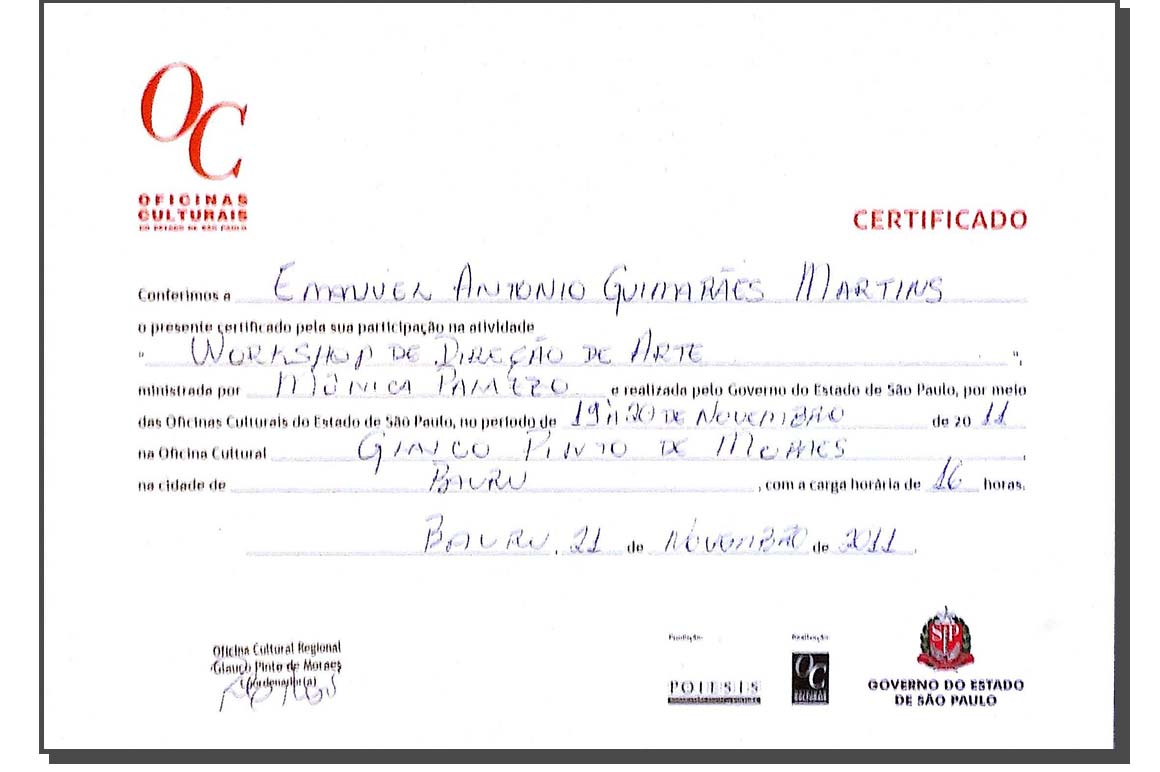 OC
OFICINAS
CULTURAIS
DO ESTADO DE SÃO PAULO
CERTIFICADO
Conferimos a EMANUEL ANTONIO GUIMARÃES MARTINS
o presente certificado pela sua participação na atividade
" WORKSHOP DE DIREÇÃO DE ARTE ",
ministrada por MÔNICA e realizada pelo Governo do Estado de São Paulo, por meio
das Oficinas Culturais do Estado de São Paulo, no período de 19 A 20 DE NOVEMBRO de 2011
na Oficina Cultural GLAUCO PINTO DE MORAES,
na cidade de BAURU, com a carga horária de 16 horas.
BAURU, 21 de NOVEMBRO de 2011.
Oficina Cultural Regional
Glauco Pinto de Moraes
Coordenador(a)
Produção
POIESIS
Realização
OC
OFICINAS
CULTURAIS
SP
GOVERNO DO ESTADO
DE SÃO PAULO